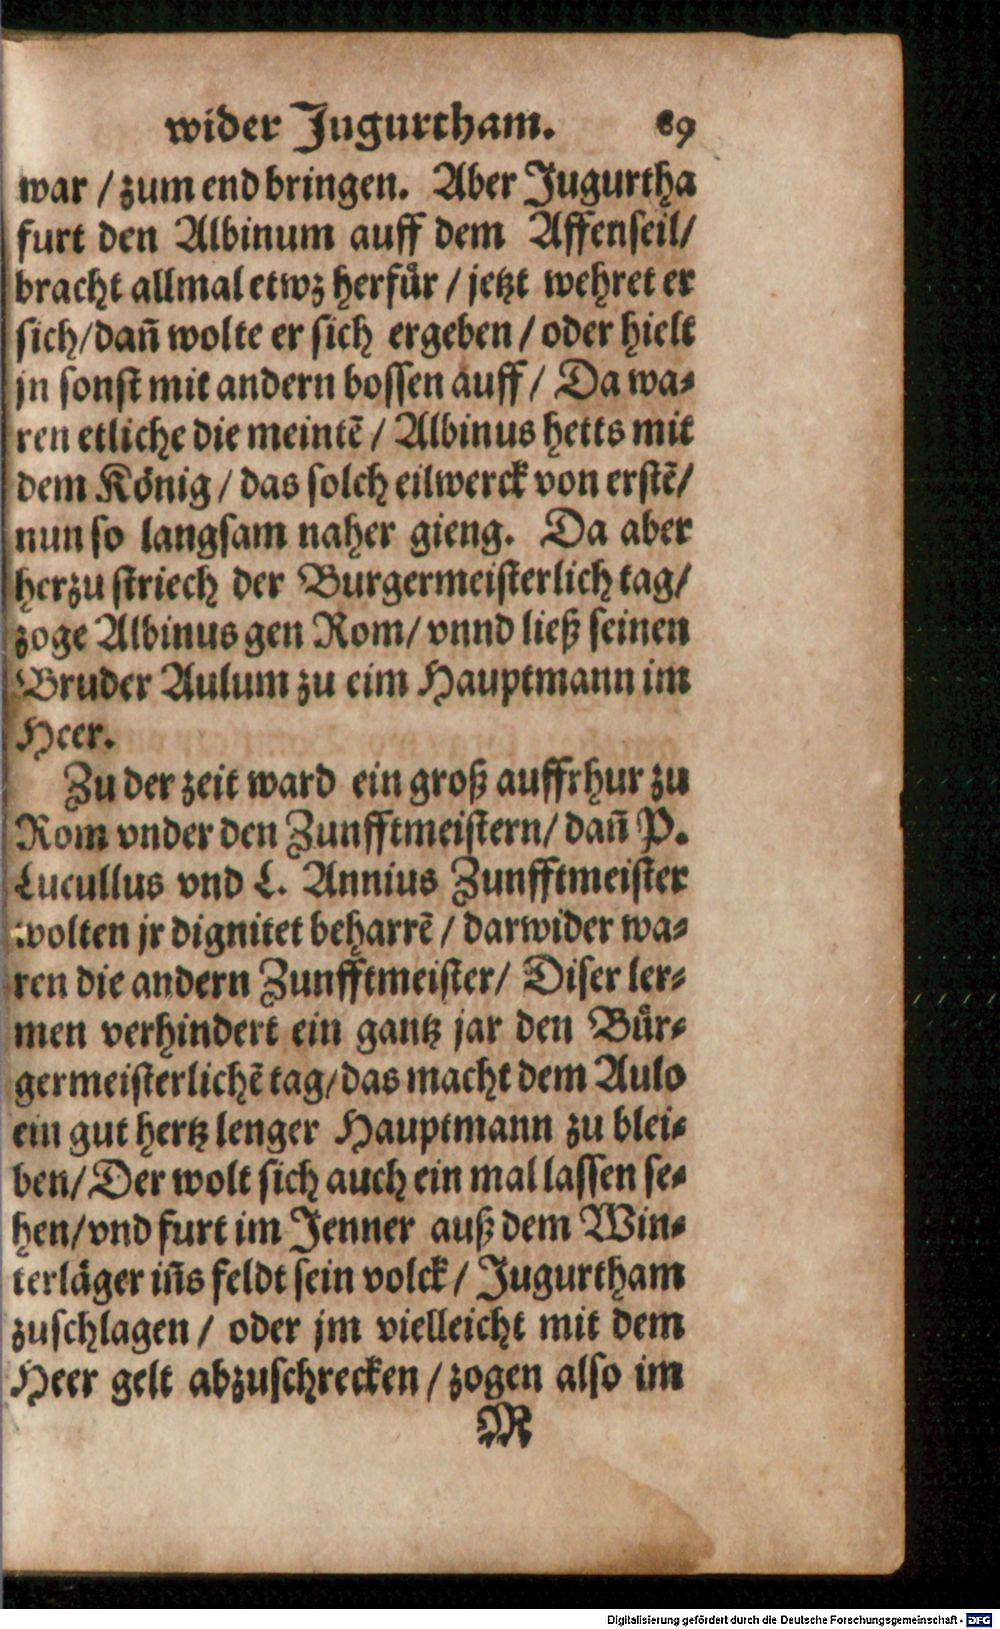 wider Jugurtham. 89
war / zum end bringen. Aber Jugurtha
furt den Albinum auff dem Affenseil/
bracht allmal etwz herfůr / jetzt wehret er
sich/dañ wolte er sich ergeben / oder hielt
jn sonst mit andern bossen auff / Da wa-
ren etliche die meintẽ / Albinus hetts mit
dem König / das solch eilwerck von erstẽ/
nun so langsam naher gieng. Da aber
herzu striech der Burgermeisterlich tag/
zoge Albinus gen Rom/ vnnd ließ seinen
Bruder Aulum zu eim Hauptmann im
Heer.
Zu der zeit ward ein groß auffrhur zu
Rom vnder den Zunfftmeistern/ dañ P.
Lucullus vnd L. Annius Zunfftmeister
wolten jr dignitet beharrẽ / darwider wa-
ren die andern Zunfftmeister/ Diser ler-
men verhindert ein gantz jar den Bůr-
germeisterlichẽ tag/das macht dem Aulo
ein gut hertz lenger Hauptmann zu blei-
ben/Der wolt sich auch ein mal lassen se-
hen/vnd furt im Jenner auß dem Win-
terläger iñs feldt sein volck / Jugurtham
zuschlagen / oder jm vielleicht mit dem
Heer gelt abzuschrecken / zogen also im
M
Digitalisierung gefördert durch die Deutsche Forschungsgemeinschaft - DFG